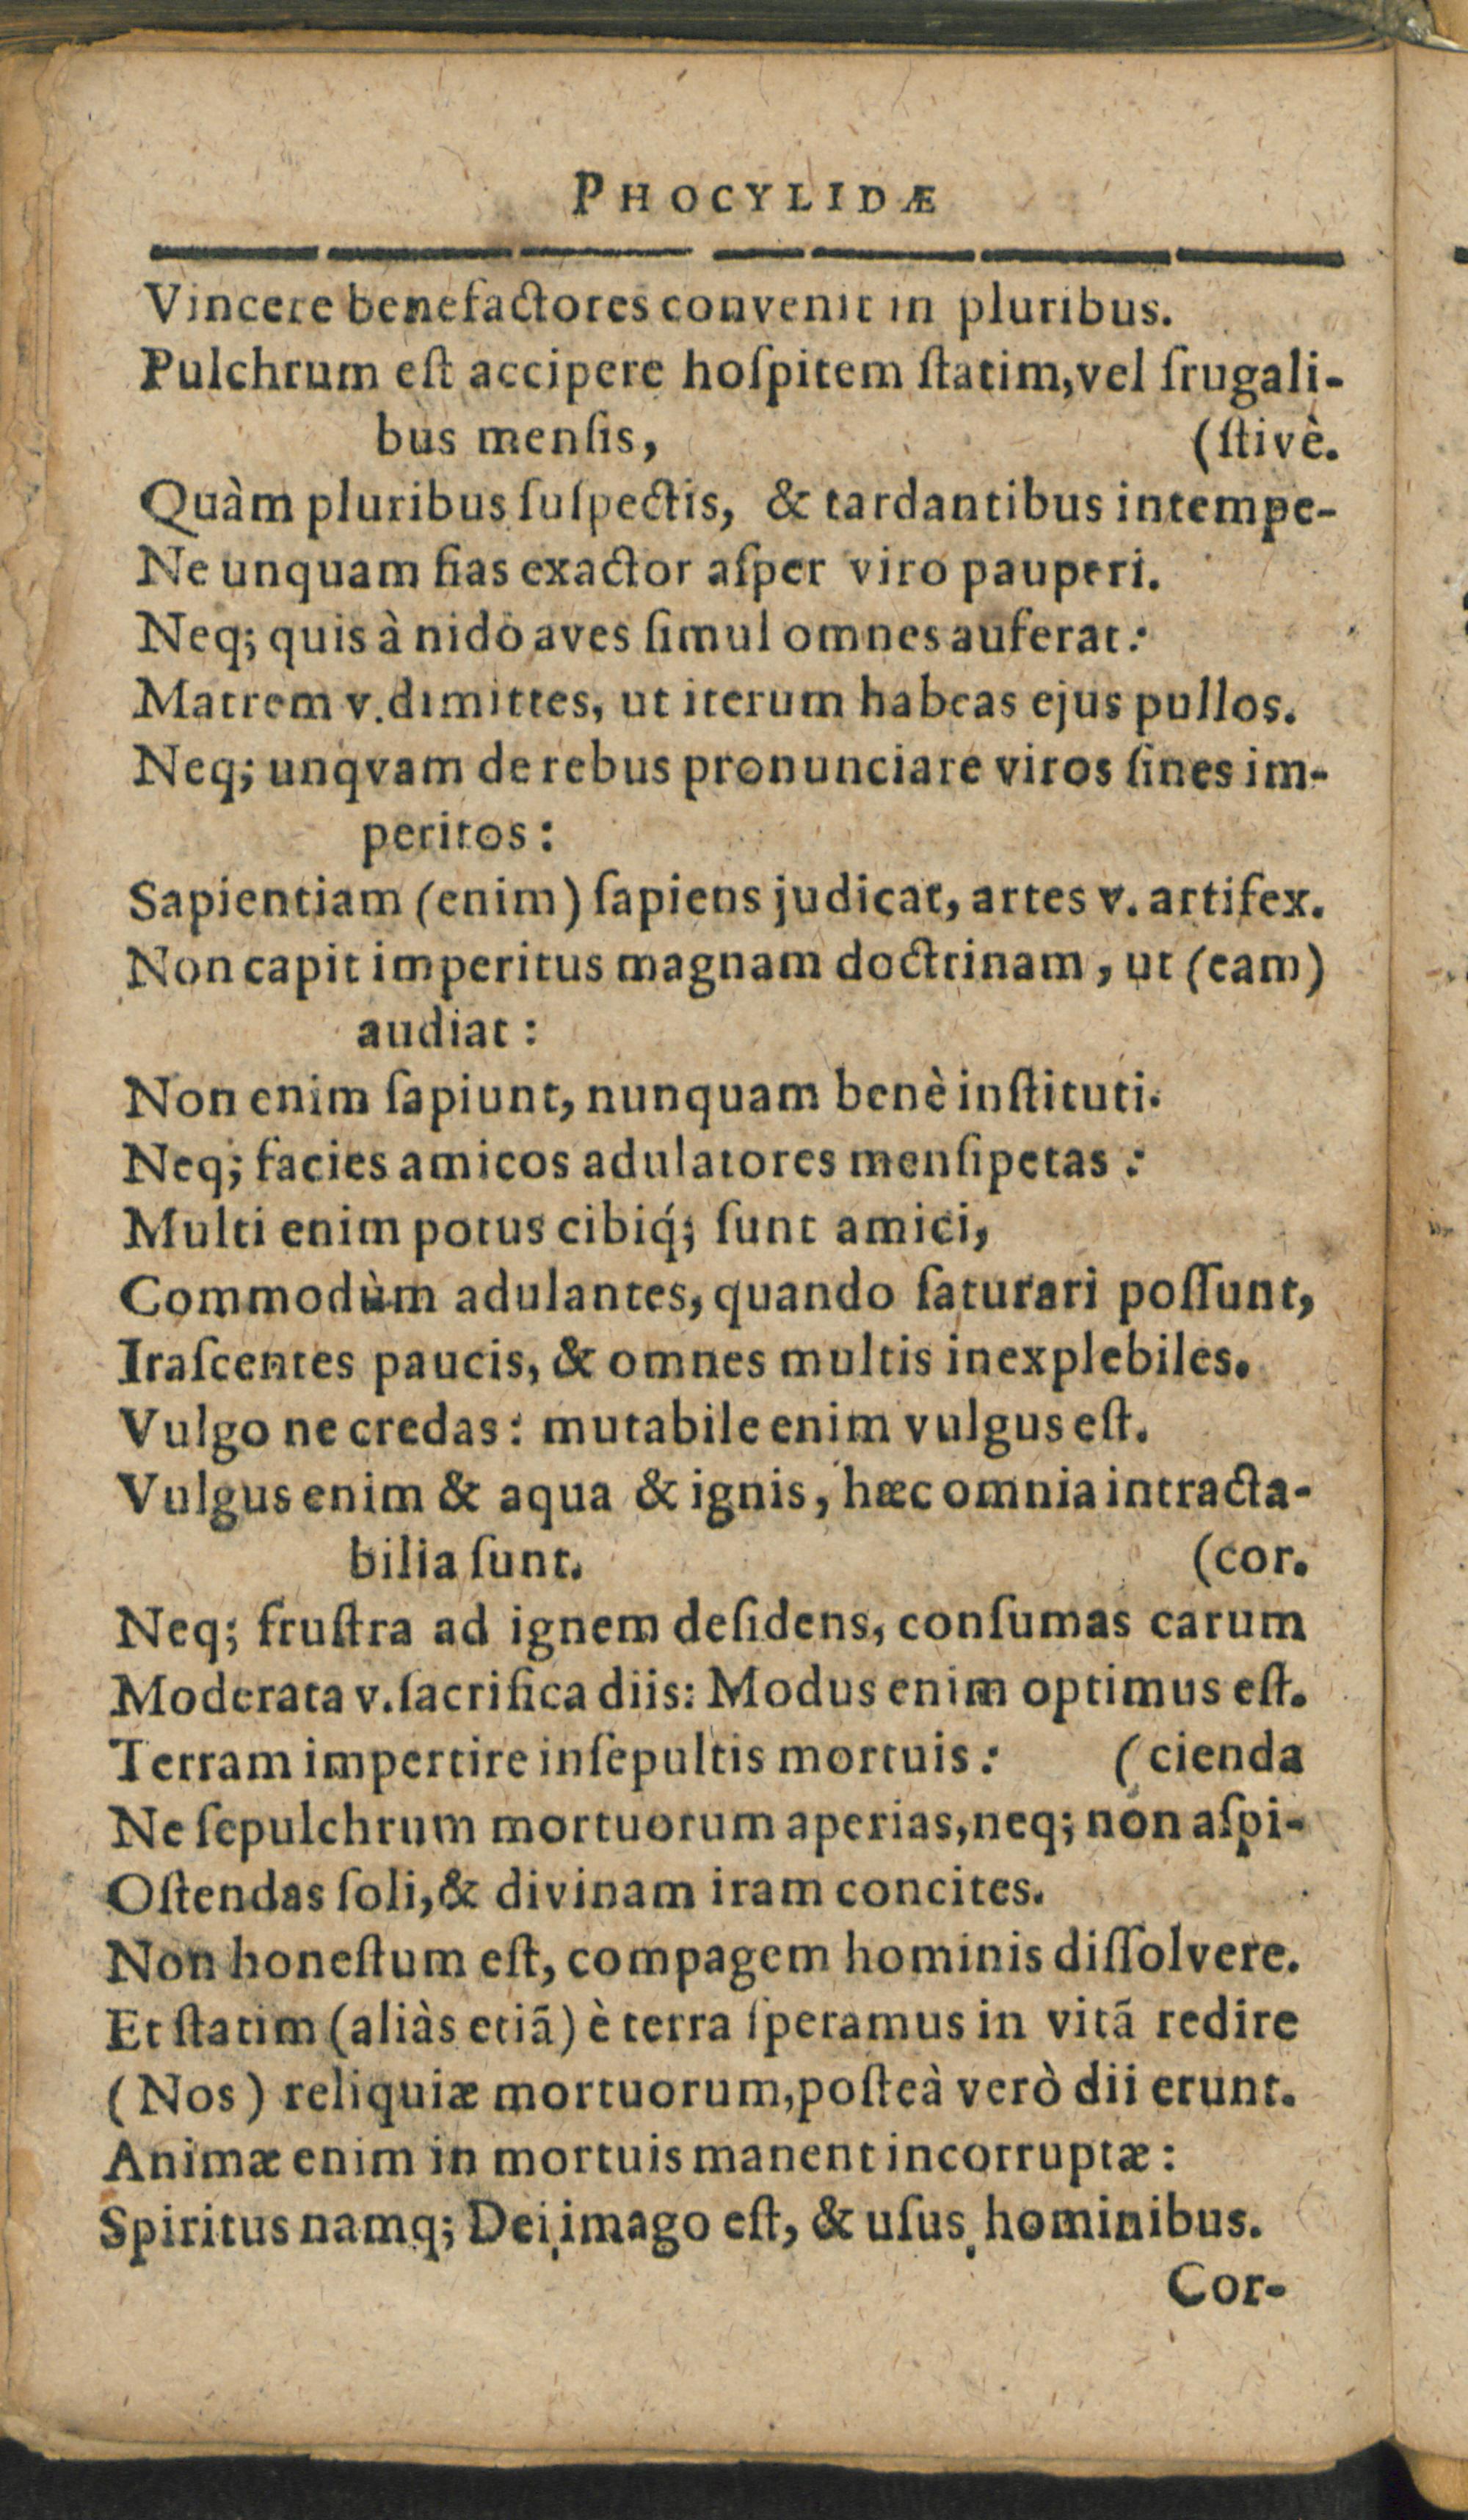 PHOCYLIDÆ
Vincere benefactores convenit in pluribus.
Pulchrum eſt accipere hoſpitem ſtatim, vel frugali-
bus menſis, (ſtivè.
Quàm pluribus ſuſpectis, & tardantibus intempe-
Ne unquam fias exactor aſper viro pauperi.
Neq; quis à nido aves ſimul omnes auferat:
Matrem v. dimittes, ut iterum habeas ejus pullos.
Neq; unqvam de rebus pronunciare viros ſines im-
peritos:
Sapientiam (enim) ſapiens judicat, artes v. artifex.
Non capit imperitus magnam doctrinam, ut (eam)
audiat:
Non enim ſapiunt, nunquam benè inſtituti.
Neq; facies amicos adulatores menſipetas:
Multi enim potus cibiq́; ſunt amici,
Commodùm adulantes, quando ſaturari poſſunt,
Iraſcentes paucis, & omnes multis inexplebiles.
Vulgo ne credas: mutabile enim vulgus eſt.
Vulgus enim & aqua & ignis, hæc omnia intracta-
bilia ſunt. (cor.
Neq; fruſtra ad ignem deſidens, conſumas carum
Moderata v. ſacrifica diis: Modus enim optimus eſt.
Terram impertire inſepultis mortuis: (cienda
Ne ſepulchrum mortuorum aperias, neq; non aſpi-
Oſtendas ſoli, & divinam iram concites.
Non honeſtum eſt, compagem hominis diſſolvere.
Et ſtatim (aliàs etiã) è terra ſperamus in vitã redire
(Nos) reliquiæ mortuorum, poſteà verò dii erunt.
Animæ enim in mortuis manent incorruptæ:
Spiritus namq; Dei imago eſt, & uſus hominibus.
Cor-